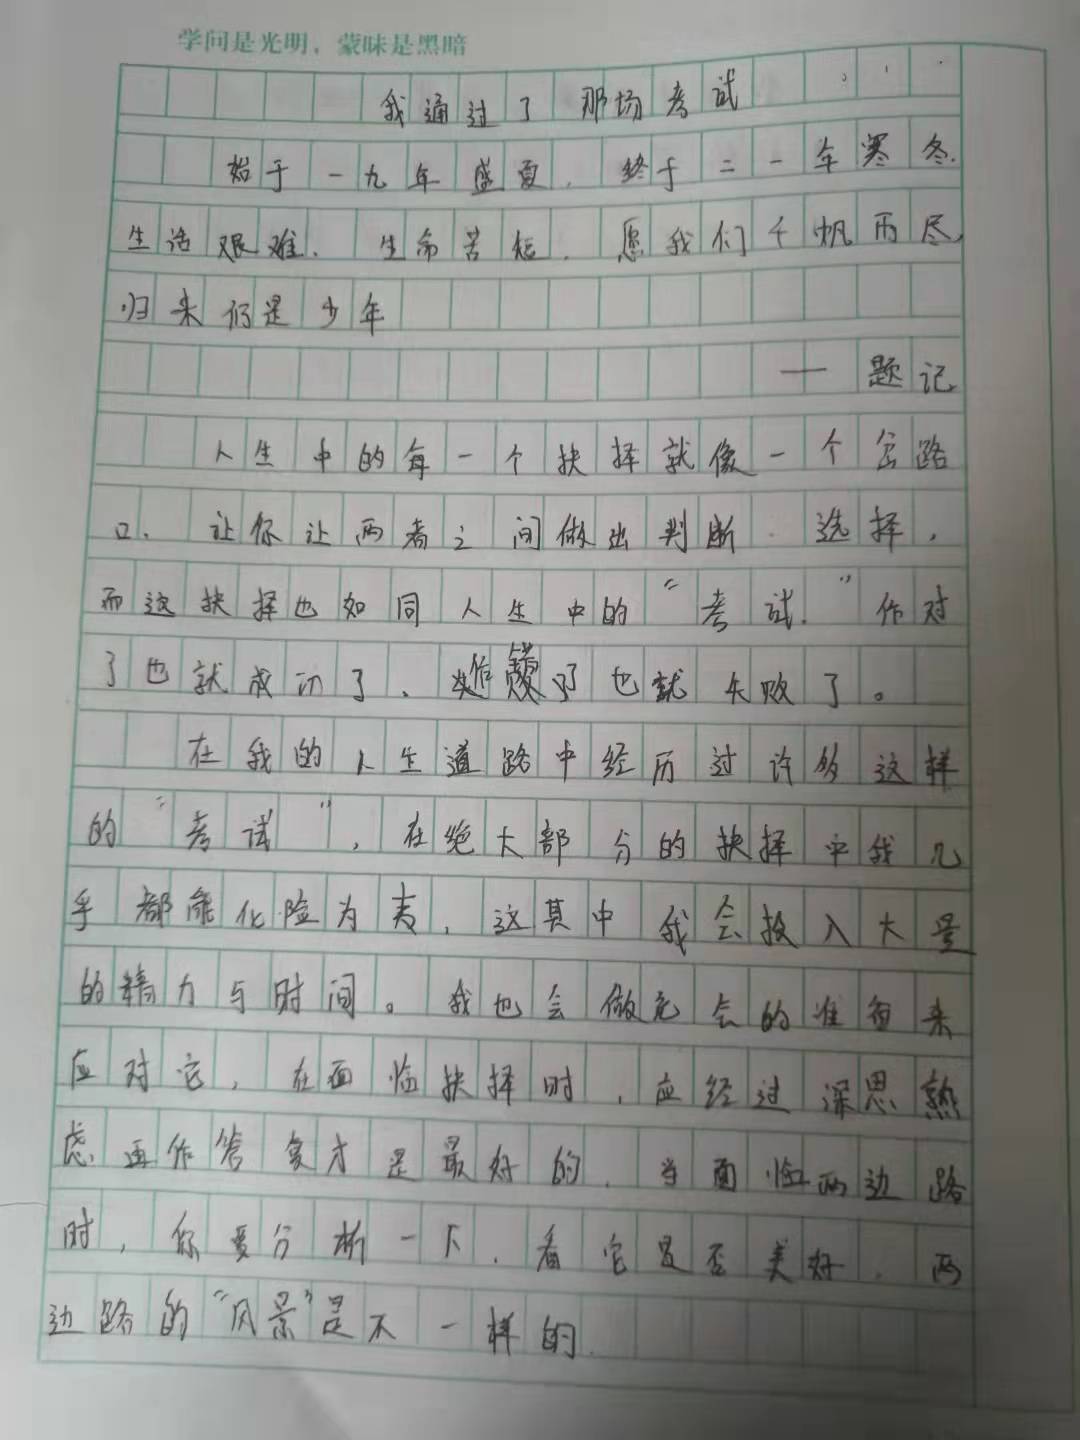 学问是光明，蒙昧是黑暗
我通过了那场考试
始于一九年盛夏，终于二一年寒冬.
生活艰难.生命苦短.愿我们千帆雨尽,
归来仍是少年
——题记
人生中的每一个抉择就像一个岔路
口.让你让两者之间做出判断.选择,
而这抉择也如同人生中的“考试.”作对
了也就成功了、了也就失败了。
在我的人生道路中经历过许多这样
的“考试”,在绝大部分的抉择中我几
乎都能化险为夷,这其中我会投入大量
的精力与时间。我也会做充会的准备来
应对它,在面临抉择时,应经过深思熟
虑再作答复才是最好的.当面临两边路
时,你要分析一下.看它是否美好.两
边路的“风景”是不一样的.